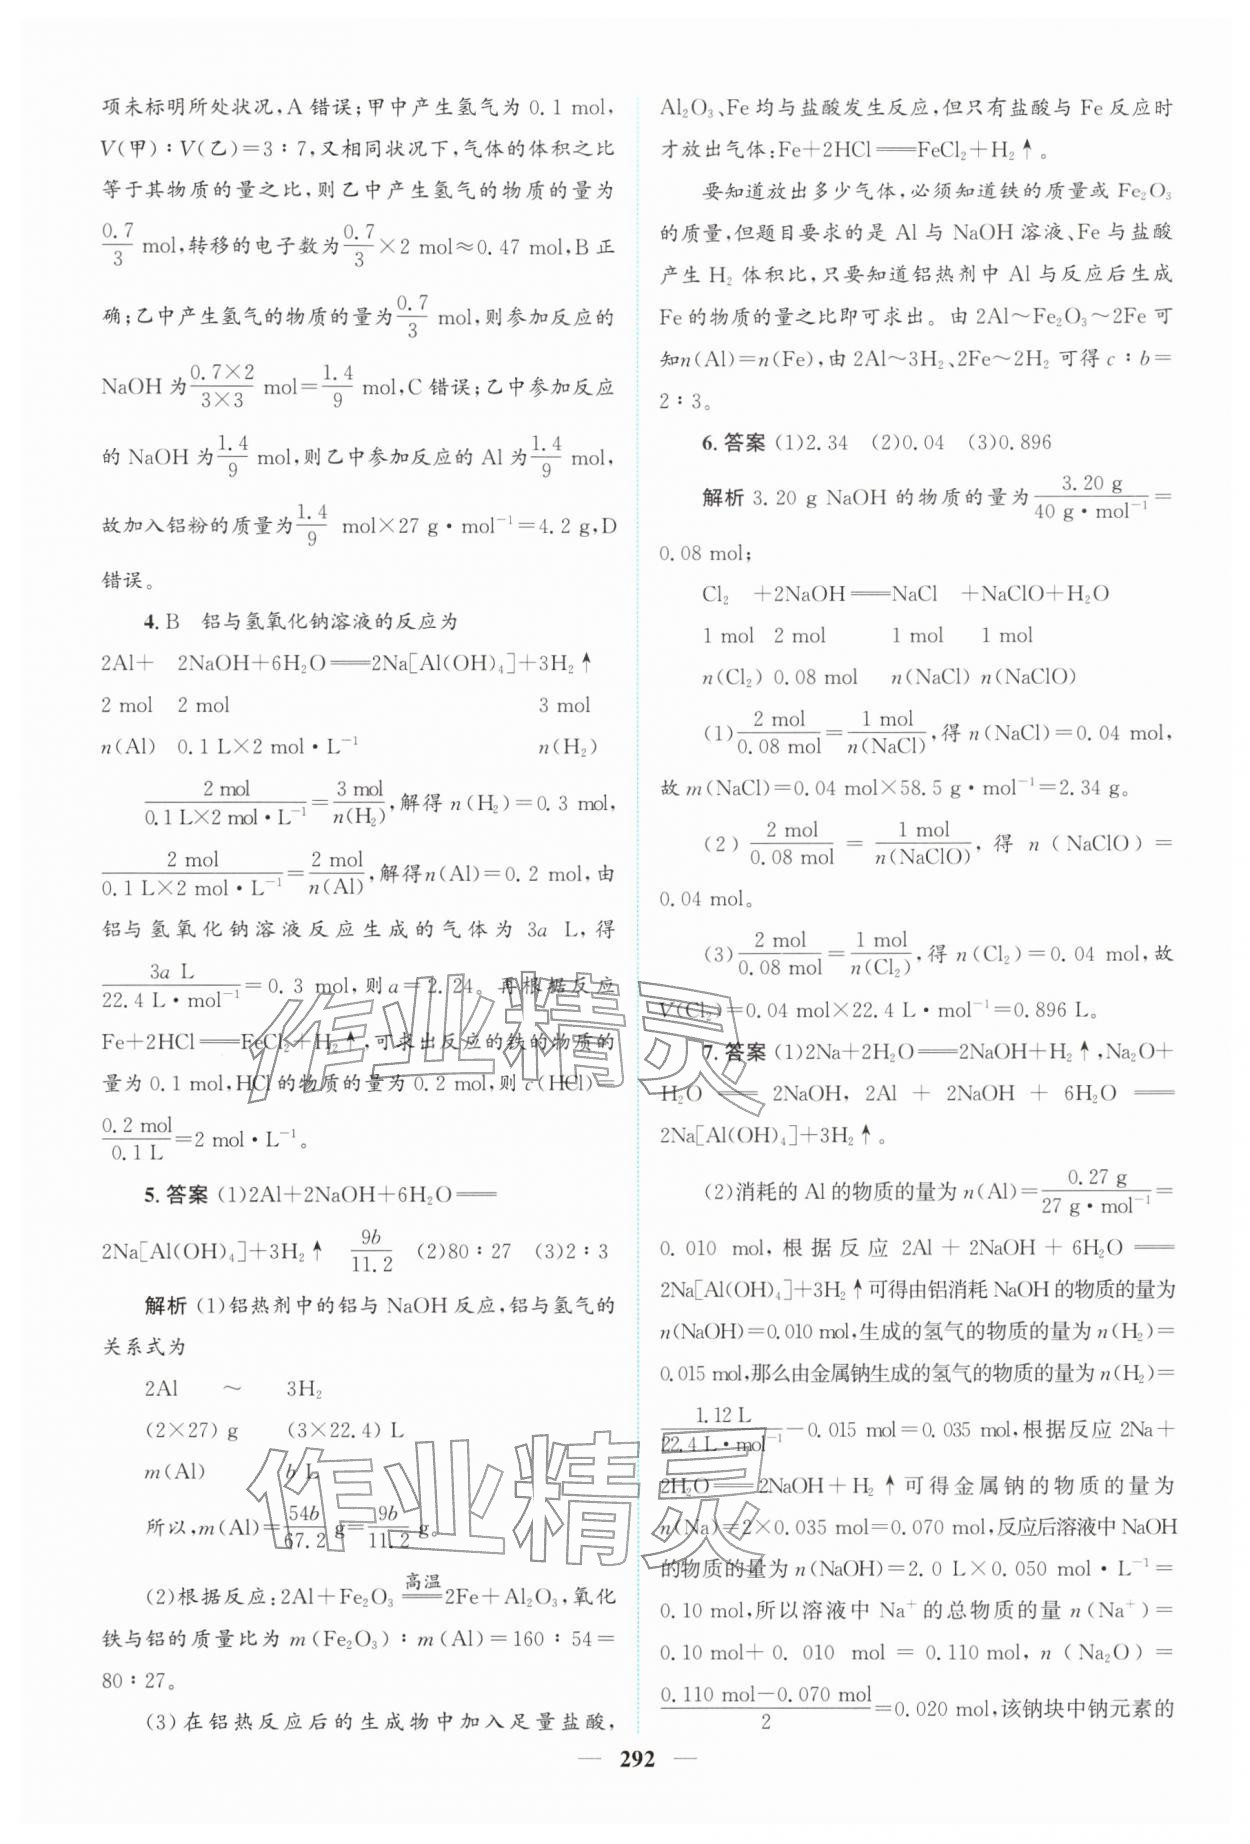 项未标明所处状况,A 错误;甲中产生氢气为 0.1 mol,
V(甲)∶V(乙)=3∶7,又相同状况下,气体的体积之比
等于其物质的量之比,则乙中产生氢气的物质的量为
0.7/3 mol,转移的电子数为 0.7/3×2 mol≈0.47 mol,B 正
确;乙中产生氢气的物质的量为 0.7/3 mol,则参加反应的
NaOH 为 (0.7×2)/(3×3) mol=1.4/9 mol,C 错误;乙中参加反应
的 NaOH 为 1.4/9 mol,则乙中参加反应的 Al 为 1.4/9 mol,
故加入铝粉的质量为 1.4/9 mol×27 g·mol⁻¹=4.2 g,D
错误。
4. B 铝与氢氧化钠溶液的反应为
2Al+ 2NaOH+6H₂O══2Na[Al(OH)₄]+3H₂↑
2 mol 2 mol 3 mol
n(Al) 0.1 L×2 mol·L⁻¹ n(H₂)
2 mol/(0.1 L×2 mol·L⁻¹)=3 mol/n(H₂),解得 n(H₂)=0.3 mol,
2 mol/(0.1 L×2 mol·L⁻¹)=2 mol/n(Al),解得n(Al)=0.2 mol,由
铝与氢氧化钠溶液反应生成的气体为 3a L,得
3a L/(22.4 L·mol⁻¹)=0.3 mol,则 a=2.24。再根据反应
Fe+2HCl══FeCl₂+H₂↑,可求出反应的铁的物质的
量为 0.1 mol,HCl 的物质的量为 0.2 mol,则 c(HCl)=
0.2 mol/0.1 L=2 mol·L⁻¹。
5. 答案 (1)2Al+2NaOH+6H₂O══
2Na[Al(OH)₄]+3H₂↑ 9b/11.2 (2)80∶27 (3)2∶3
解析 (1)铝热剂中的铝与 NaOH 反应,铝与氢气的
关系式为
2Al ~ 3H₂
(2×27) g (3×22.4) L
m(Al) b L
所以,m(Al)=54b/67.2 g=9b/11.2 g。
(2)根据反应:2Al+Fe₂O₃ ══高温══ 2Fe+Al₂O₃,氧化
铁与铝的质量比为 m(Fe₂O₃)∶m(Al)=160∶54=
80∶27。
(3)在铝热反应后的生成物中加入足量盐酸,
Al₂O₃、Fe 均与盐酸发生反应,但只有盐酸与 Fe 反应时
才放出气体:Fe+2HCl══FeCl₂+H₂↑。
要知道放出多少气体,必须知道铁的质量或 Fe₂O₃
的质量,但题目要求的是 Al 与 NaOH 溶液、Fe 与盐酸
产生 H₂ 体积比,只要知道铝热剂中 Al 与反应后生成
Fe 的物质的量之比即可求出。由 2Al~Fe₂O₃~2Fe 可
知n(Al)=n(Fe),由 2Al~3H₂、2Fe~2H₂ 可得 c∶b=
2∶3。
6. 答案 (1)2.34 (2)0.04 (3)0.896
解析 3.20 g NaOH 的物质的量为 3.20 g/(40 g·mol⁻¹)=
0.08 mol;
Cl₂ +2NaOH══NaCl +NaClO+H₂O
1 mol 2 mol 1 mol 1 mol
n(Cl₂) 0.08 mol n(NaCl) n(NaClO)
(1) 2 mol/0.08 mol=1 mol/n(NaCl),得 n(NaCl)=0.04 mol,
故 m(NaCl)=0.04 mol×58.5 g·mol⁻¹=2.34 g。
(2) 2 mol/0.08 mol = 1 mol/n(NaClO),得 n(NaClO)=
0.04 mol。
(3) 2 mol/0.08 mol=1 mol/n(Cl₂),得 n(Cl₂)=0.04 mol,故
V(Cl₂)=0.04 mol×22.4 L·mol⁻¹=0.896 L。
7. 答案 (1)2Na+2H₂O══2NaOH+H₂↑,Na₂O+
H₂O══2NaOH, 2Al + 2NaOH + 6H₂O══
2Na[Al(OH)₄]+3H₂↑。
(2)消耗的 Al 的物质的量为 n(Al)=0.27 g/(27 g·mol⁻¹)=
0.010 mol,根据反应 2Al+2NaOH+6H₂O══
2Na[Al(OH)₄]+3H₂↑可得由铝消耗 NaOH 的物质的量为
n(NaOH)=0.010 mol,生成的氢气的物质的量为 n(H₂)=
0.015 mol,那么由金属钠生成的氢气的物质的量为 n(H₂)=
1.12 L/(22.4 L·mol⁻¹)-0.015 mol=0.035 mol,根据反应 2Na+
2H₂O══2NaOH+H₂↑可得金属钠的物质的量为
n(Na)=2×0.035 mol=0.070 mol,反应后溶液中 NaOH
的物质的量为 n(NaOH)=2.0 L×0.050 mol·L⁻¹=
0.10 mol,所以溶液中 Na⁺ 的总物质的量 n(Na⁺)=
0.10 mol+0.010 mol=0.110 mol,n(Na₂O)=
(0.110 mol-0.070 mol)/2=0.020 mol,该钠块中钠元素的
— 292 —
作业精灵
作业精灵